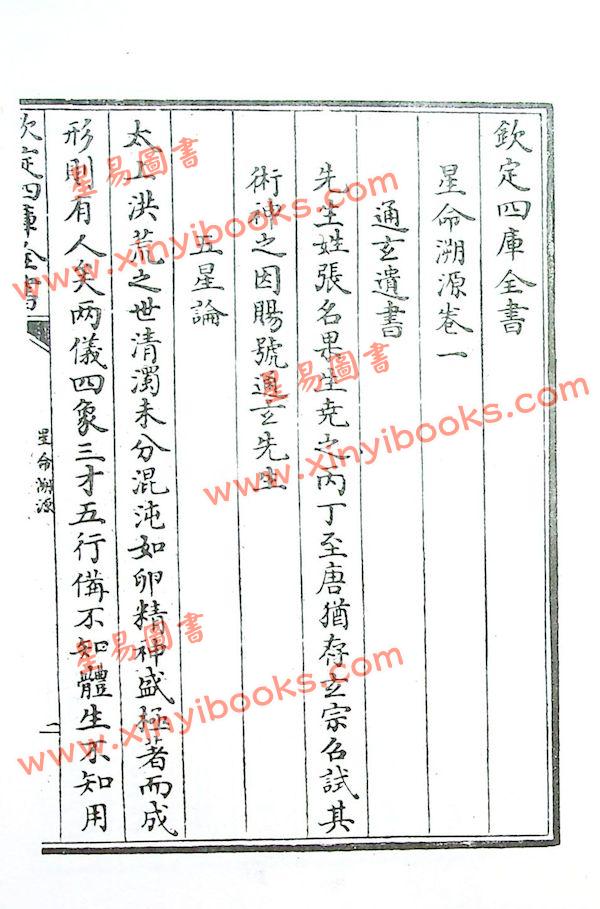 欽定四庫全書
星命溯源卷一
通玄遺書
先生姓張名果生堯之丙丁至唐猶存玄宗名試其
術神之因賜號通玄先生
五星論
太上洪荒之世清濁未分混沌如卵精神盛極著而成
形則有人矣兩儀四象三才五行備不知體生不知用
欽定四庫全書
星命溯源
二
星易圖書
www.xinyibooks.com
星易圖書
www.xinyibooks.com
星易圖書
www.xinyibooks.com